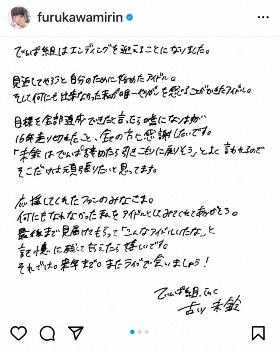 furukawamirin
でんぱ組はエンディングを迎えることになりました。
見返してやろうと自分のために始めたアイドル。
そして何にも出来なかった私が唯一やりがいを感じることができたアイドル。
目標を全部達成できたと言ったら嘘になるけど
16年走り切れたこと、全ての方に感謝したいです。
「未鈴はでんぱ辞めたら引きこもりに戻りそう」とよく言われるので
そこだけは頑張りたいと思ってます。
応援してくれたファンのみなさま。
何にもなれなかった私をアイドルにしてくれてありがとう。
最後まで見届けてもらって「こんなアイドルいたな」と
記憶に残してもらえたら嬉しいです。
それでは。来年まで。またライブで会いましょう！
でんぱ組.inc
古川未鈴